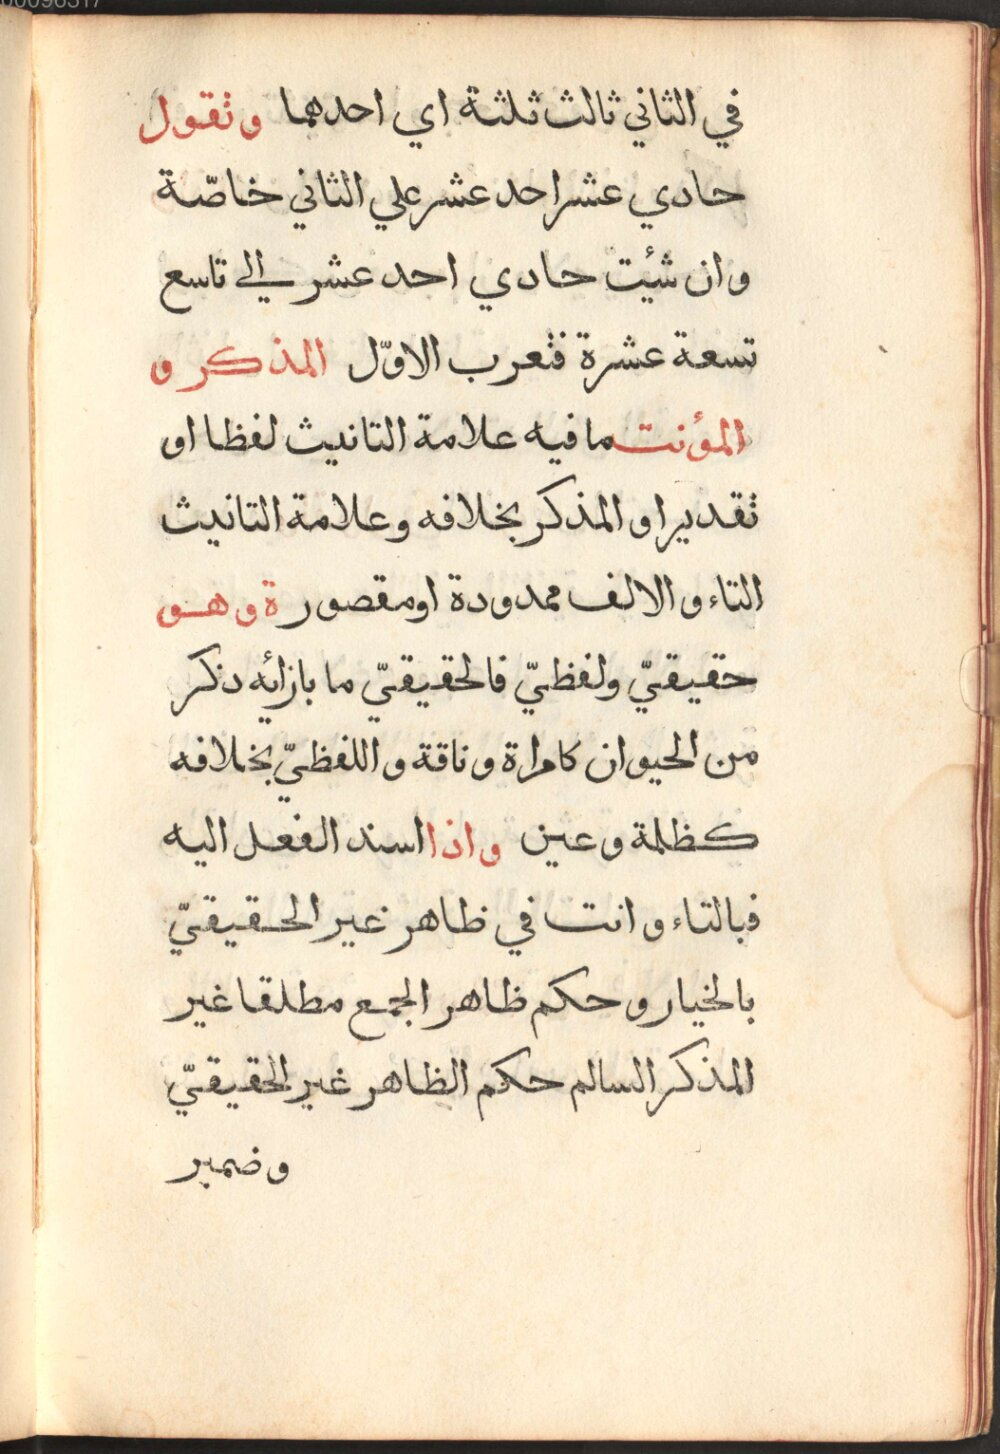 في الثاني ثالث ثلثة اي احدهما وتقول
حادي عشر احد عشر علي الثاني خاصّة
وان شئت حادي احد عشر الي تاسع
تسعة عشرة فتعرب الاوّل المذكر و
المؤنت ما فيه علامة التانيث لفظا او
تقديرا والمذكر بخلافه وعلامة التانيث
التاء والالف ممدودة او مقصورة وهو
حقيقيّ ولفظيّ فالحقيقيّ ما بازائه ذكر
من الحيوان كامراة وناقة واللفظيّ بخلافه
كظلمة وعين واذا اسند الفعل اليه
فبالتاء وانت في ظاهر غير الحقيقيّ
بالخيار وحكم ظاهر الجمع مطلقا غير
المذكر السالم حكم الظاهر غير الحقيقيّ
وضمير